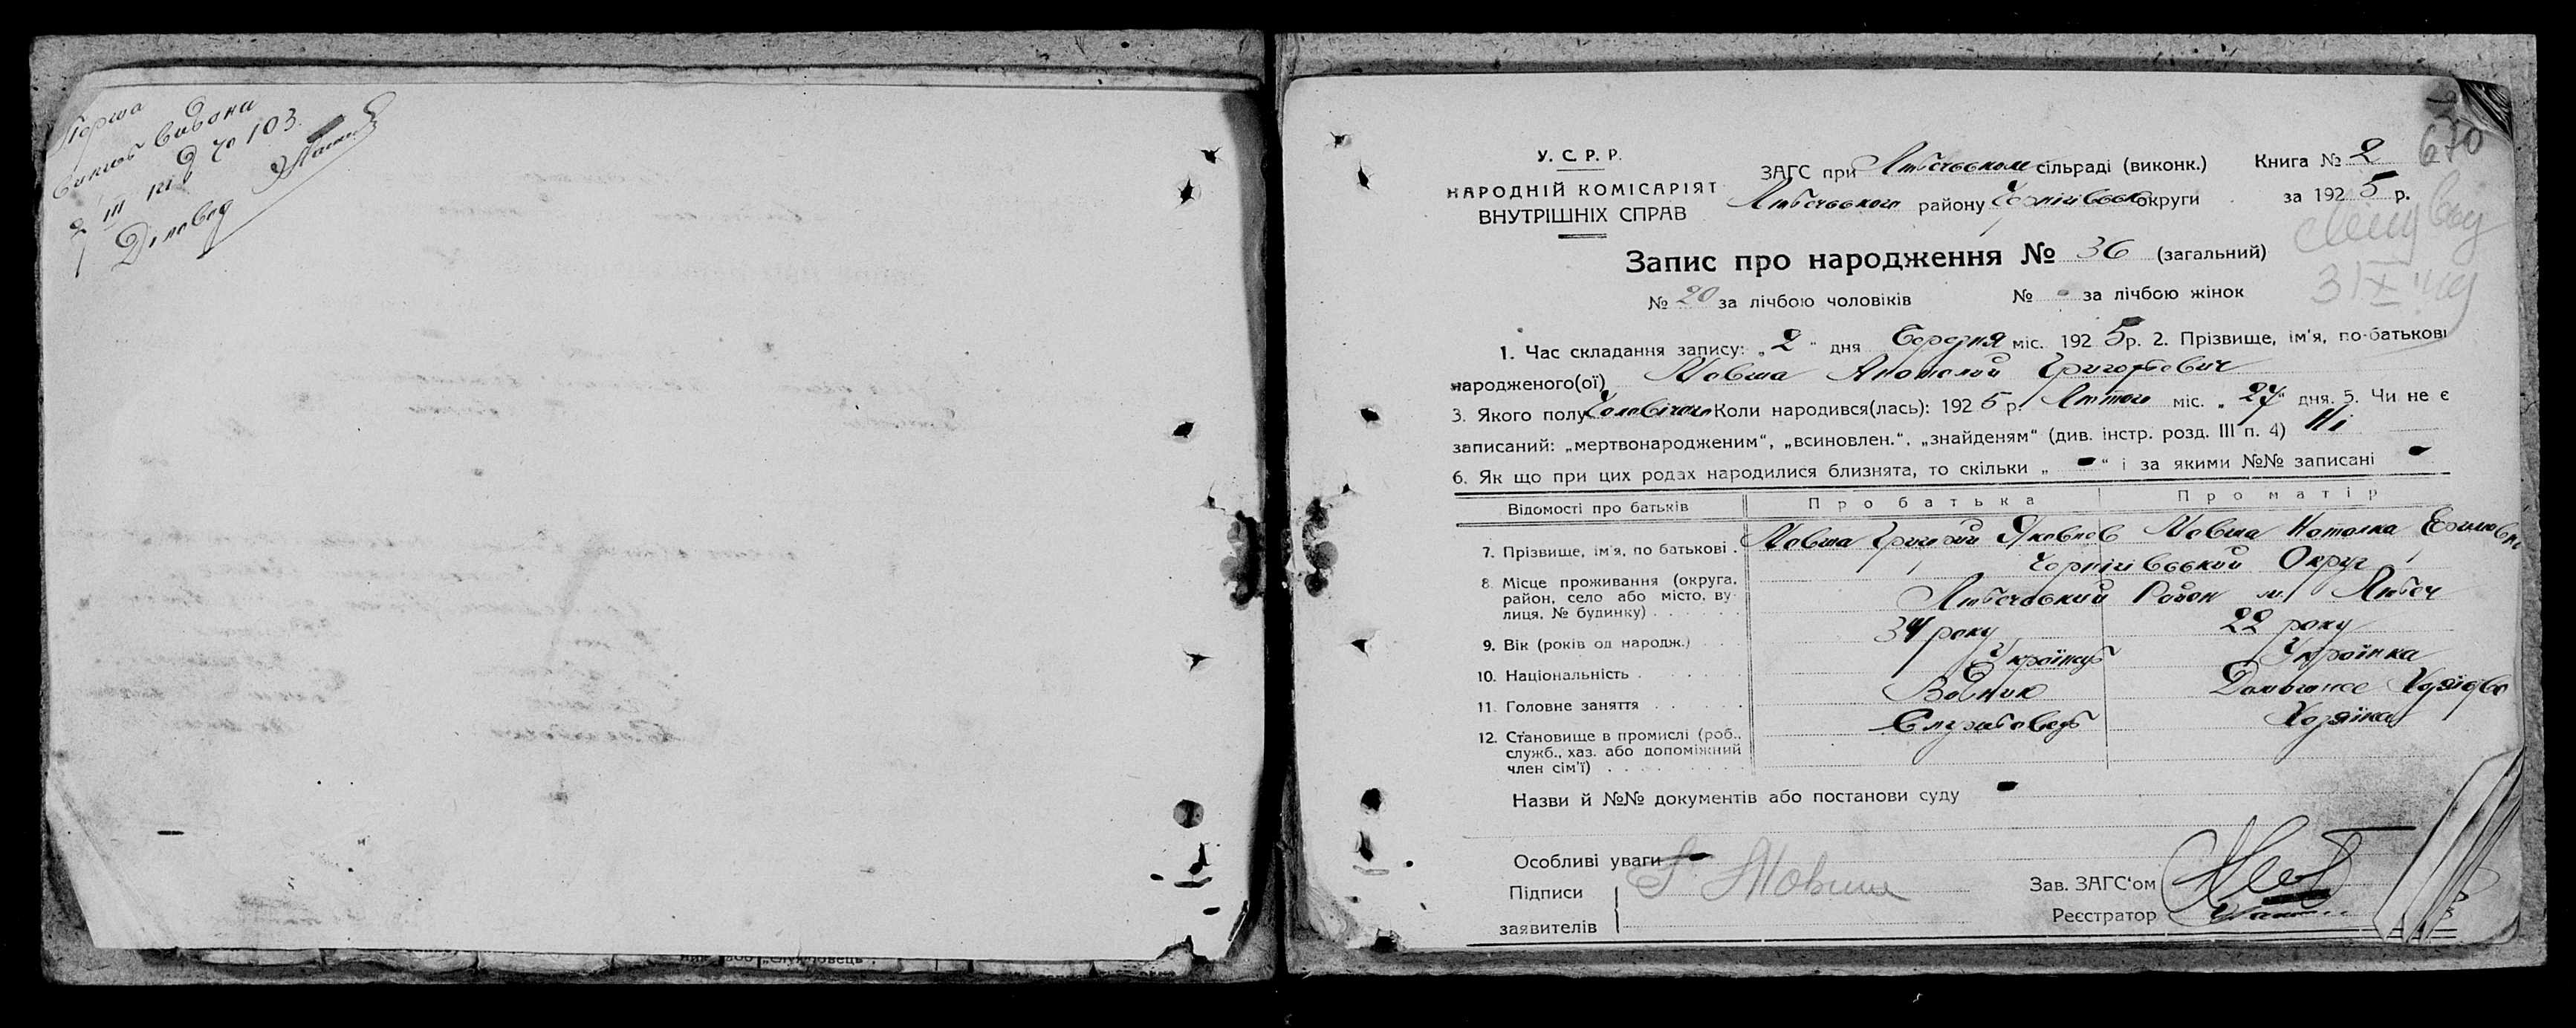 Перша
випись видана
2/III під № 103.
Діловод
У. С. Р. Р.
НАРОДНІЙ КОМІСАРІЯТ
ВНУТРІШНІХ СПРАВ
ЗАГС при Любечськом сільраді (виконк.)
Любечського району Чернігівськ округи
Книга № 2
за 1925 р.
670
Запис про народження № 36 (загальний)
№ 20 за лічбою чоловіків № - за лічбою жінок
1. Час складання запису: „2" дня Березня міс. 1925 р. 2. Прізвище, ім'я, по-батькові
народженого(ої) Мовша Анатолій Григорьевич
3. Якого полу Чоловічого Коли народився(лась): 1925 р. Лютого міс. „27" дня. 5. Чи не є
записаний: „мертвонародженим", „всиновлен.", „знайденям" (див. інстр. розд. III п. 4) Ні
6. Як що при цих родах народилися близнята, то скільки „ - " і за якими №№ записані -
Відомості про батьків Про батька Про матір
7. Прізвище, ім'я, по батькові . Мовша Григорий Яковлев Мовша Наталка
8. Місце проживання (округа, Чернігівський Округ
район, село або місто, ву- Любечський Район м. Любеч
лиця, № будинку) . . . . . .
9. Вік (років од народж.) . . 34 року 22 року
10. Національність . . . . . . Українець Українка
11. Головне заняття . . . . . Домашнє
12. Становище в промислі (роб., Службовець Хозяїка
служб., хаз. або допоміжний
член сім'ї) . . . . . . . . .
Назви й №№ документів або постанови суду -
Особливі уваги -
Підписи Мовша
заявителів
Зав. ЗАГС'ом
Реєстратор